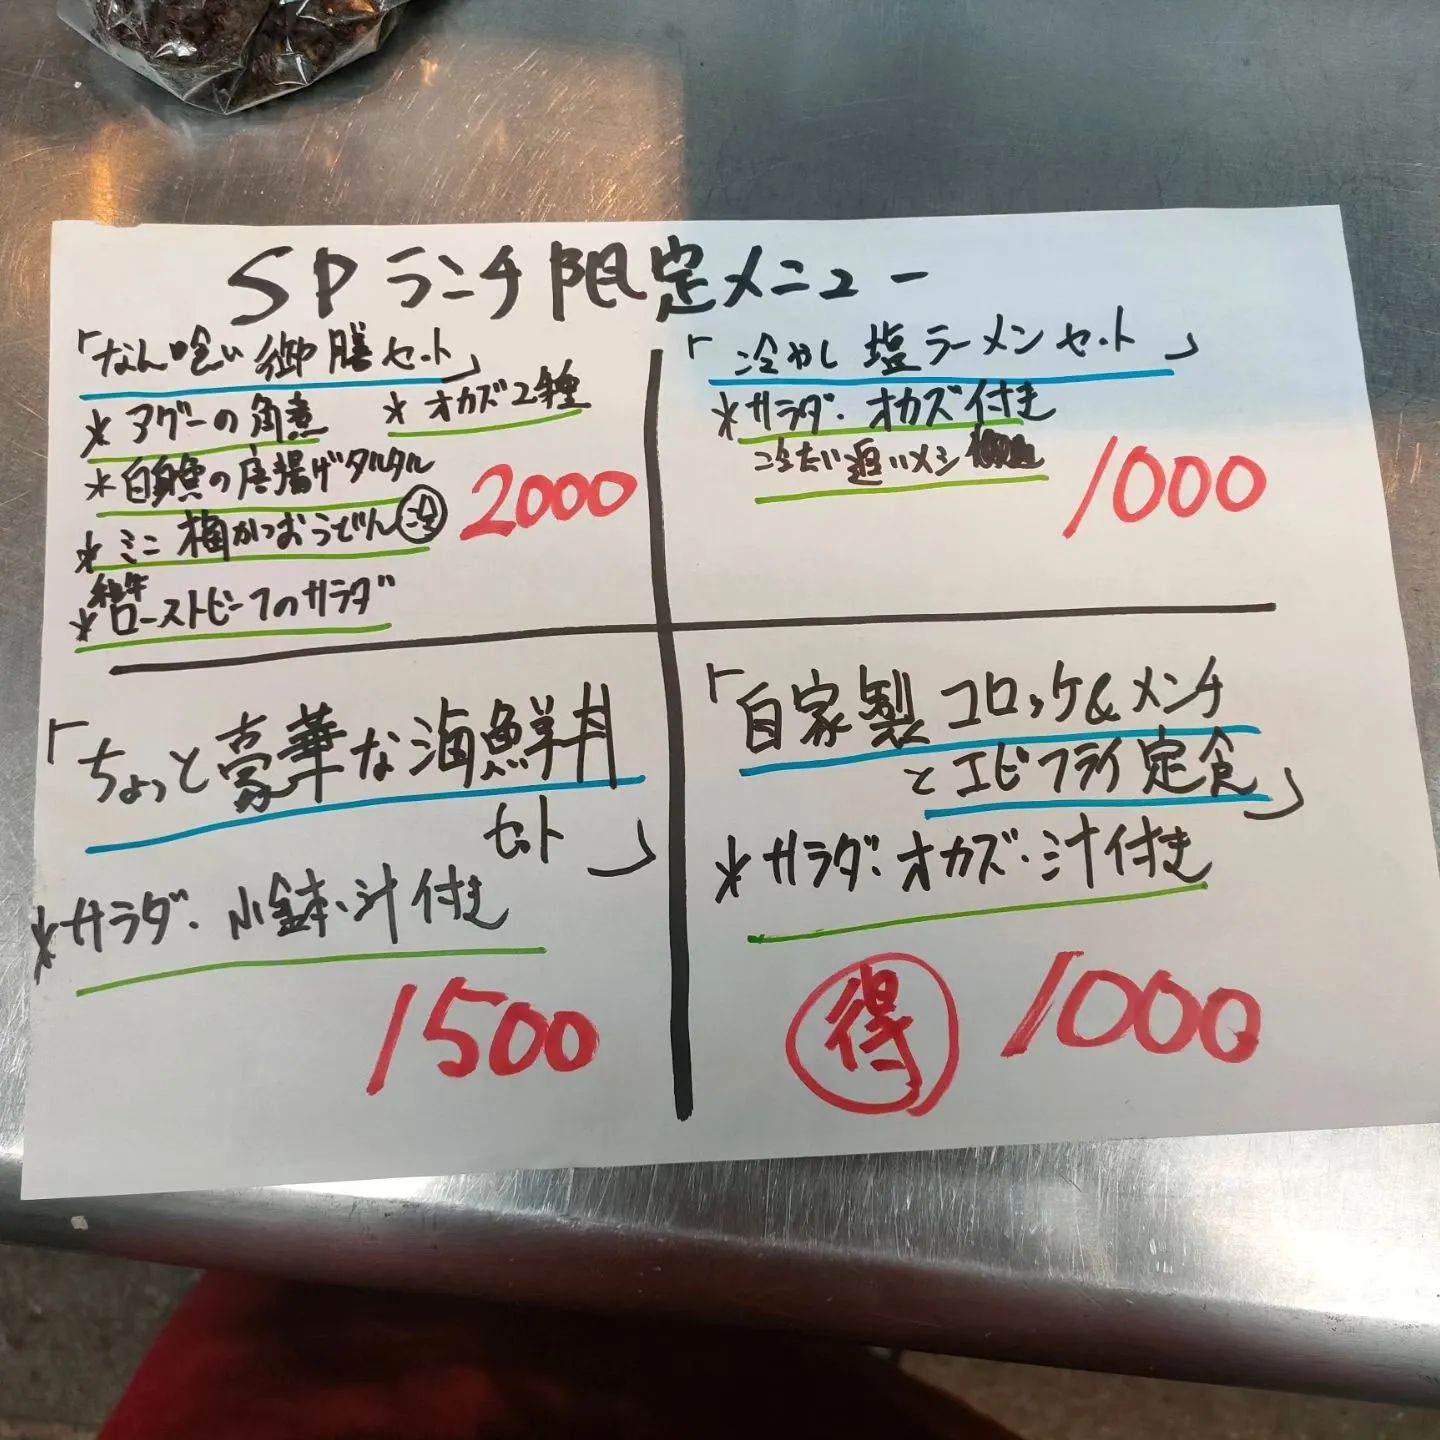 SPランチ限定メニュー
「なん喰い御膳セット」
*アグーの角煮 *オカズ2種
*白身魚の唐揚げタルタル
*ミニ 梅かつおうどん冷
2000
和牛
*ローストビーフのサラダ
「冷やし 塩ラーメンセット」
*サラダ・オカズ付き
冷たい追いメシ
1000
「ちょっと豪華な海鮮丼
セット」
*サラダ・小鉢・汁付き
1500
「自家製コロッケ&メンチ
とエビフライ定食」
*サラダ・オカズ・汁付き
得 1000